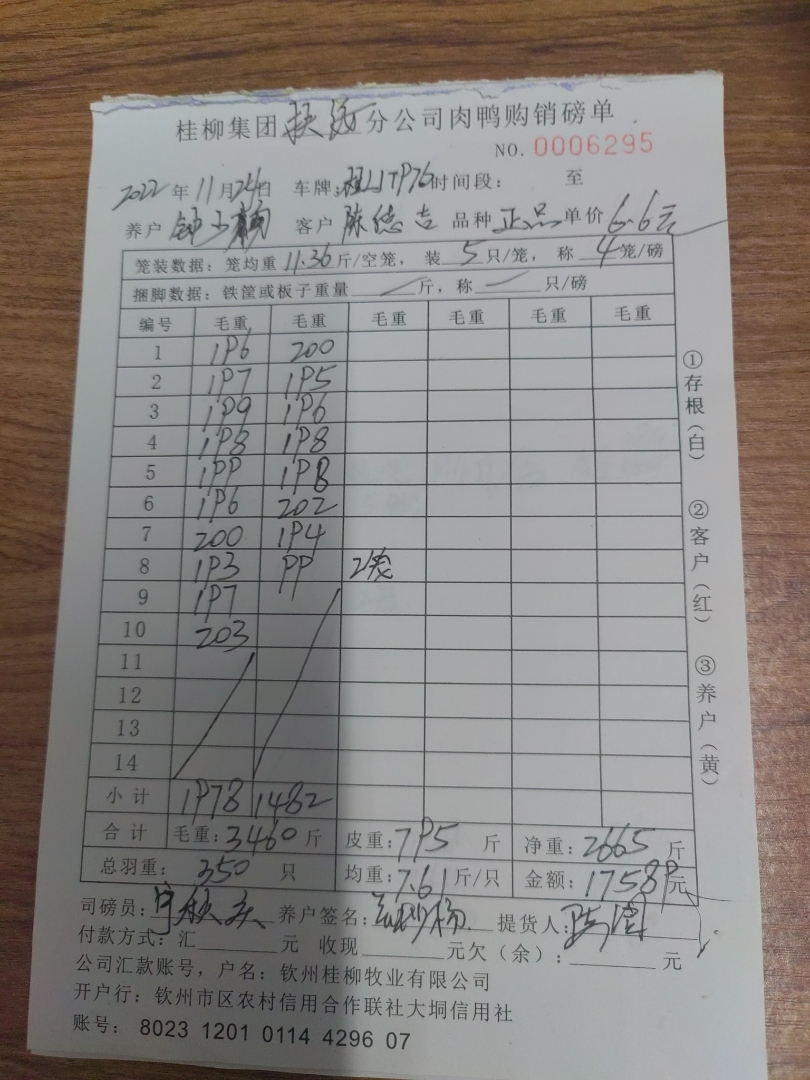 桂柳集团扶绥分公司肉鸭购销磅单
NO. 0006295
2022年11月24日 车牌: 时间段: 至
养户 钟 客户 陈德吉 品种 正品 单价 6.6元
笼装数据:笼均重11.36斤/空笼,装5只/笼,称4笼/磅
捆脚数据:铁筐或板子重量 斤,称 只/磅
编号 毛重 毛重 毛重 毛重 毛重 毛重
1 196 200
2 197 195
3 199 196
4 198 198
5 199 198
6 196 202
7 200 194
8 193 99 2笼
9 197
10 203
11
12
13
14
小计 1978 1482
合计 毛重:3460斤 皮重:795斤 净重:2665斤
总羽重:350只 均重:7.61斤/只 金额:17589元
司磅员: 养户签名: 提货人:
付款方式:汇 元 收现 元欠(余): 元
公司汇款账号,户名:钦州桂柳牧业有限公司
开户行:钦州市区农村信用合作联社大垌信用社
账号: 8023 1201 0114 4296 07
①存根(白)
②客户(红)
③养户(黄)